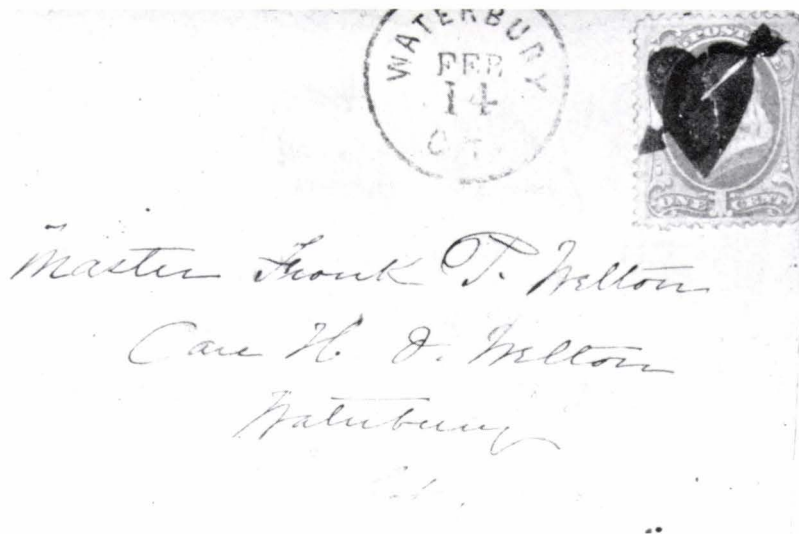 WATERBURY
FEB
14
CT.
ONE CENT
Master Frank T. Welton
Care H. D. Welton
Waterbury